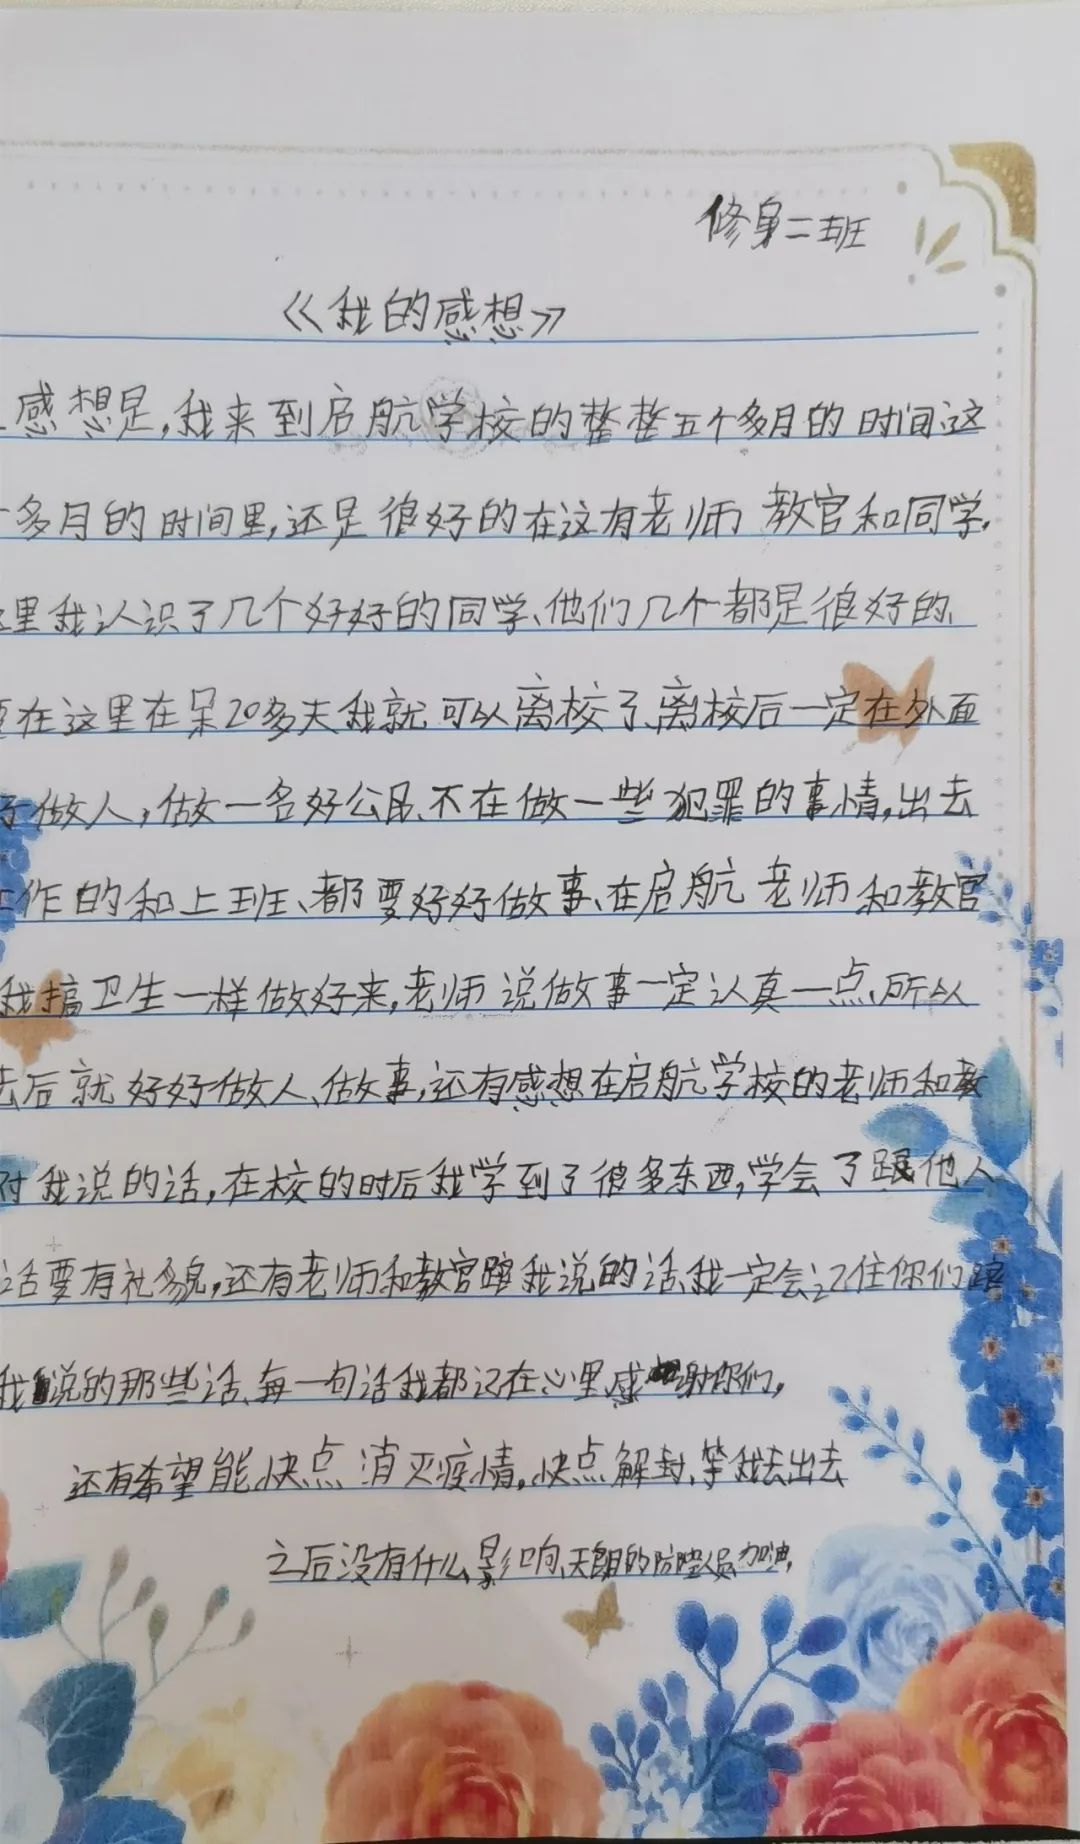 修身二班
《我的感想》
感想是,我来到启航学校的整整五个多月的时间这
多月的时间里,还是很好的在这有老师 教官和同学,
里我认识了几个好好的同学、他们几个都是很好的、
在这里在呆20多天我就可以离校了、离校后一定在外面
做人,做一名好公民、不在做一些犯罪的事情,出去
作的和上班、都要好好做事、在启航老师和教官
我搞卫生一样做好来,老师说做事一定认真一点、所以
后就好好做人、做事,还有感想在启航学校的老师和教
对我说的话,在校的时后我学到了很多东西,学会了跟他人
话要有礼貌,还有老师和教官跟我说的话、我一定会记住你们跟
我说的那些话、每一句话我都记在心里、感谢你们,
还有希望能快点消灭疫情,快点解封、等我去出去
之后没有什么影响、天朗的防控人员加油,